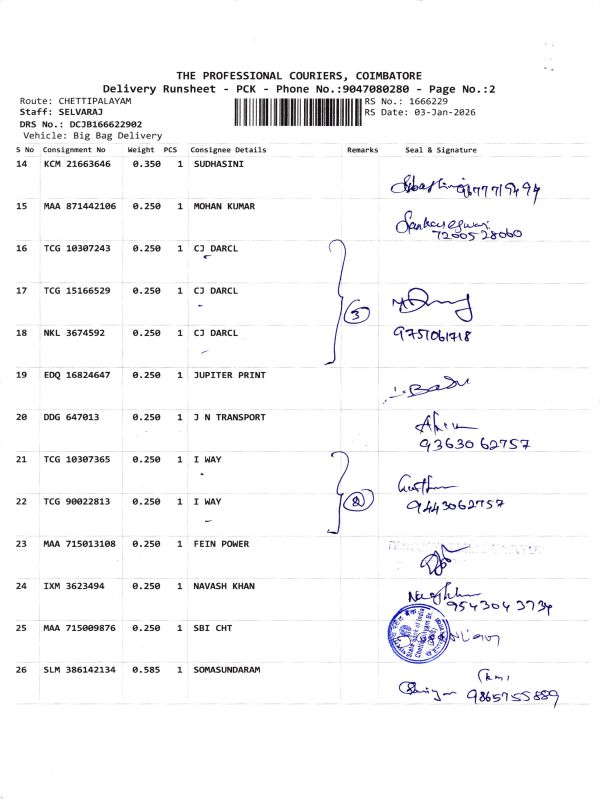 THE PROFESSIONAL COURIERS, COIMBATORE
Delivery Runsheet - PCK - Phone No.:9047080280 - Page No.:2
Route: CHETTIPALAYAM
RS No.: 1666229
Staff: SELVARAJ
RS Date: 03-Jan-2026
DRS No.: DCJB166622902
Vehicle: Big Bag Delivery
S No Consignment No Weight PCS Consignee Details Remarks Seal & Signature
14 KCM 21663646 0.350 1 SUDHASINI
15 MAA 871442106 0.250 1 MOHAN KUMAR
7200528060
16 TCG 10307243 0.250 1 CJ DARCL
17 TCG 15166529 0.250 1 CJ DARCL
3
18 NKL 3674592 0.250 1 CJ DARCL
9751061718
19 EDQ 16824647 0.250 1 JUPITER PRINT
Babu
20 DDG 647013 0.250 1 J N TRANSPORT
9363062757
21 TCG 10307365 0.250 1 I WAY
22 TCG 90022813 0.250 1 I WAY
2
9443062757
23 MAA 715013108 0.250 1 FEIN POWER
24 IXM 3623494 0.250 1 NAVASH KHAN
9543043734
25 MAA 715009876 0.250 1 SBI CHT
State Bank of India
26 SLM 386142134 0.585 1 SOMASUNDARAM
9865755889